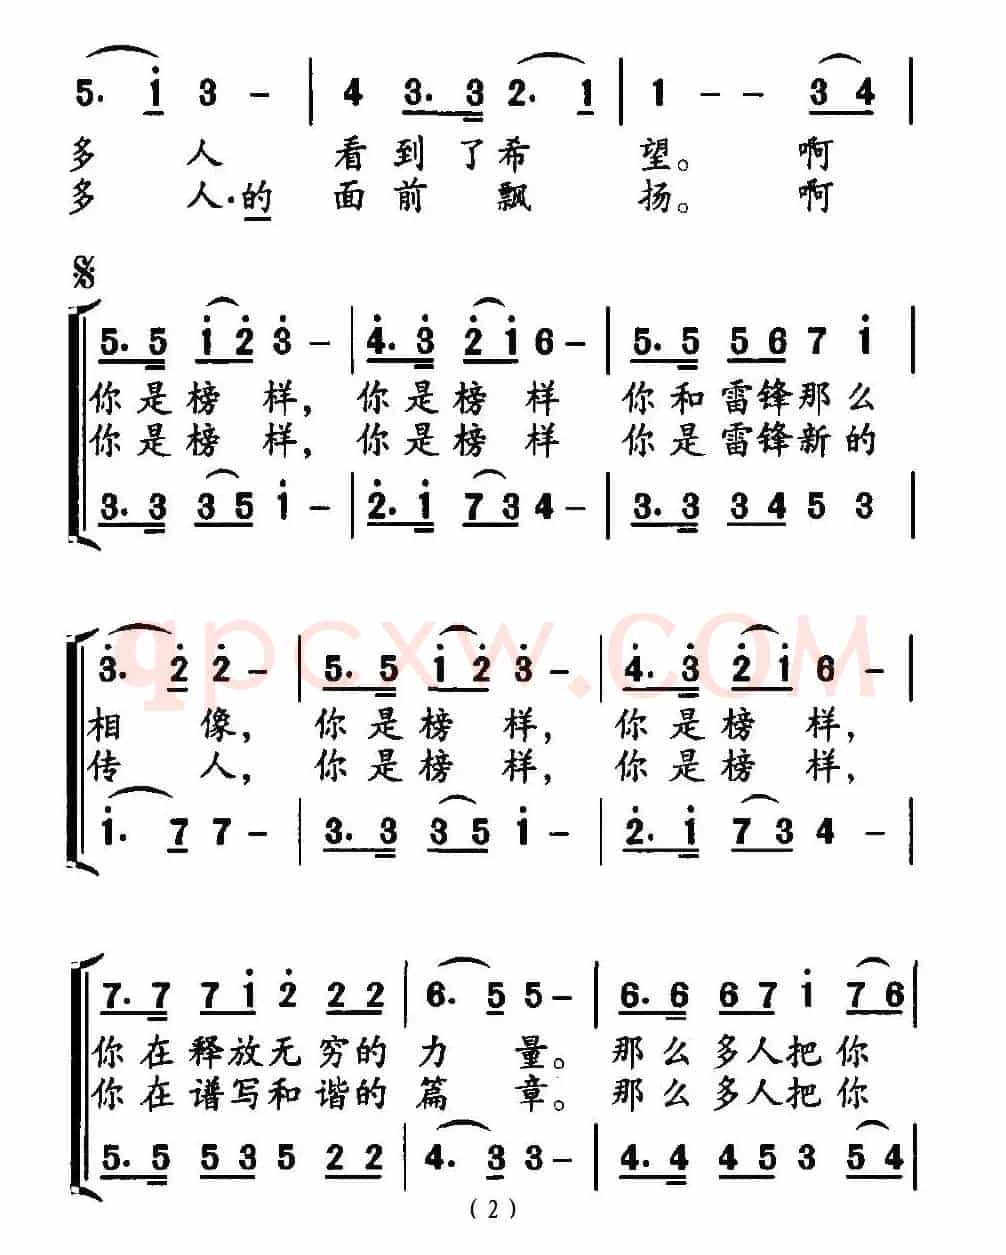 5. i 3 - | 4 3. 3 2. 1 | 1 - - 3 4 |
多 人 看 到 了 希 望。 啊
多 人. 的 面 前 飘 扬。 啊
5. 5 i 2 3 - | 4. 3 2 i 6 - | 5. 5 5 6 7 i |
你 是 榜 样, 你 是 榜 样 你 和 雷 锋 那 么
你 是 榜 样, 你 是 榜 样 你 是 雷 锋 新 的
3. 3 3 5 i - | 2. i 7 3 4 - | 3. 3 3 4 5 3 |
qpcxw.COM
3. 2 2 - | 5. 5 i 2 3 - | 4. 3 2 i 6 - |
相 像, 你 是 榜 样, 你 是 榜 样,
传 人, 你 是 榜 样, 你 是 榜 样,
i. 7 7 - | 3. 3 3 5 i - | 2. i 7 3 4 - |
7. 7 7 i 2 2 2 | 6. 5 5 - | 6. 6 6 7 i 7 6 |
你 在 释 放 无 穷 的 力 量。 那 么 多 人 把 你
你 在 谱 写 和 谐 的 篇 章。 那 么 多 人 把 你
5. 5 5 3 5 2 2 | 4. 3 3 - | 4. 4 4 5 3 5 4 |
( 2 )